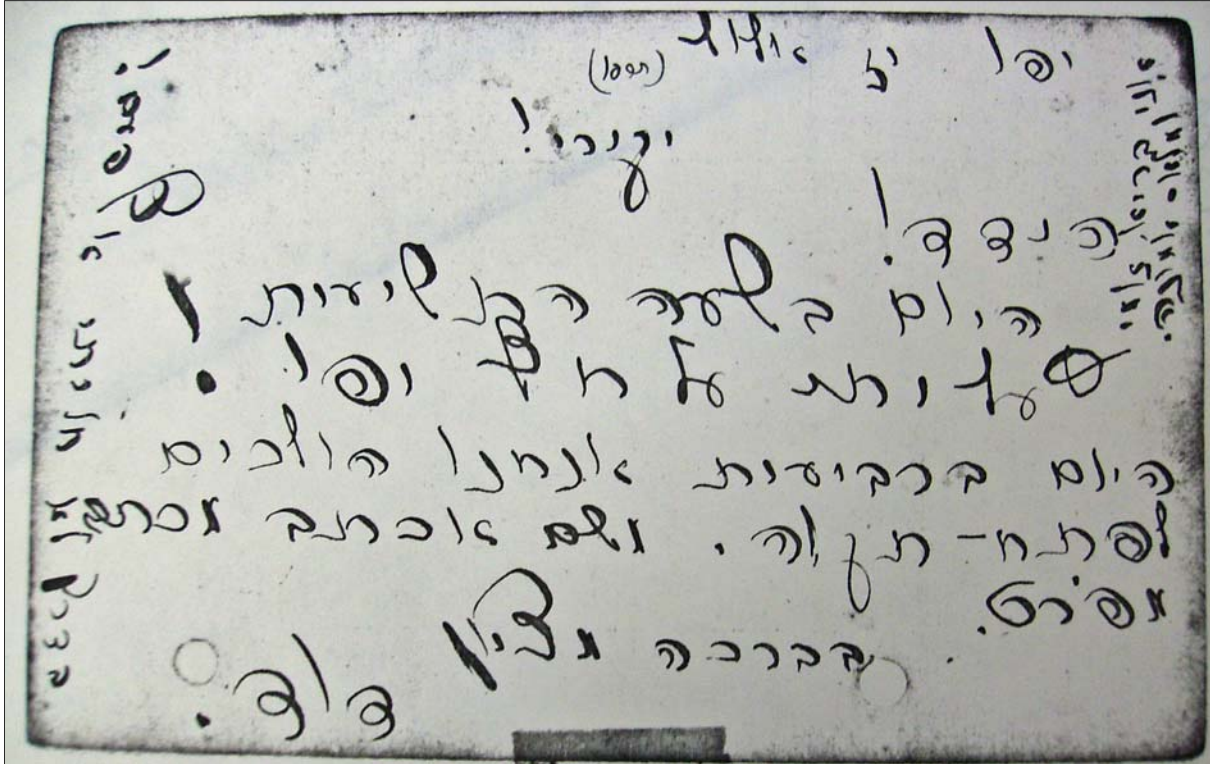 יפו יז אלול (תרסו)
יקירי!
הידד!
היום בשעה התשיעית!
עליתי על חף יפו!
היום ברביעית אנחנו הולכים
לפתח-תקוה. משם אכתב מכתב
מפרט.
בברכה מציון
דוד.